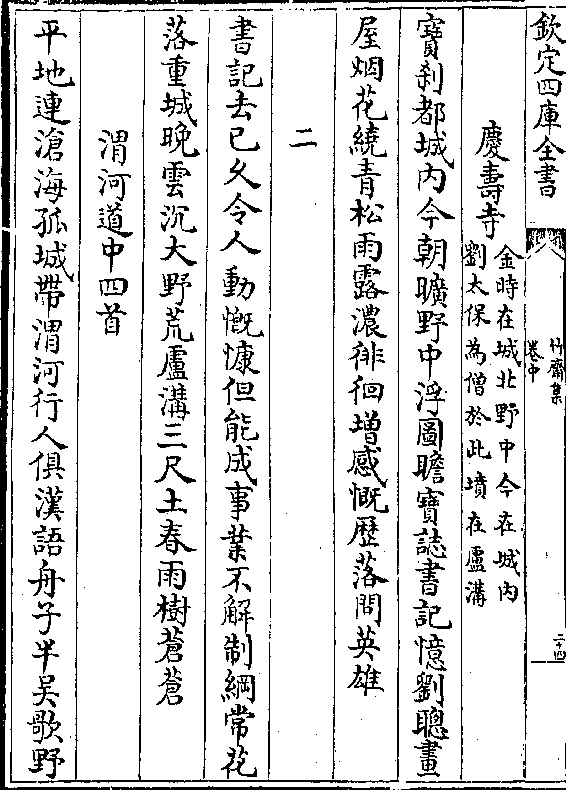 欽定四庫全書
竹齋集
卷中
二十四
慶壽寺
金時在城北野中今在城内
劉太保為僧於此墳在盧溝
寳刹都城内今朝曠野中浮圖瞻寳誌書記憶劉聰畫
屋烟花繞青松雨露濃徘徊增感慨歴落問英雄
二
書記去已乆令人動慨慷但能成事業不解制綱常花
落重城晚雲沉大野荒盧溝三尺土春雨樹蒼蒼
渭河道中四首
平地連滄海孤城帶渭河行人俱漢語舟子半吴歌野